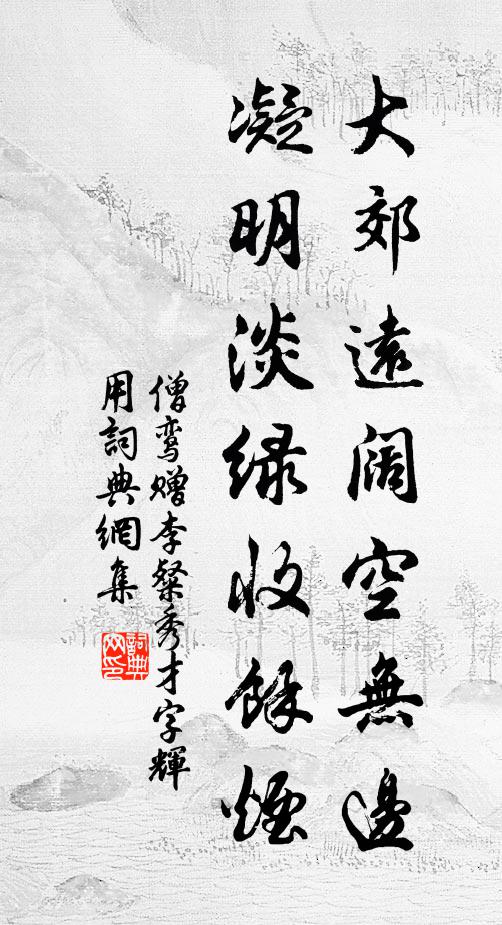 大郊遠阔空無邊
凝明淡绿收餘煙
僧鸾赠李粲秀才字輝
用詞典網集
詞典
网印